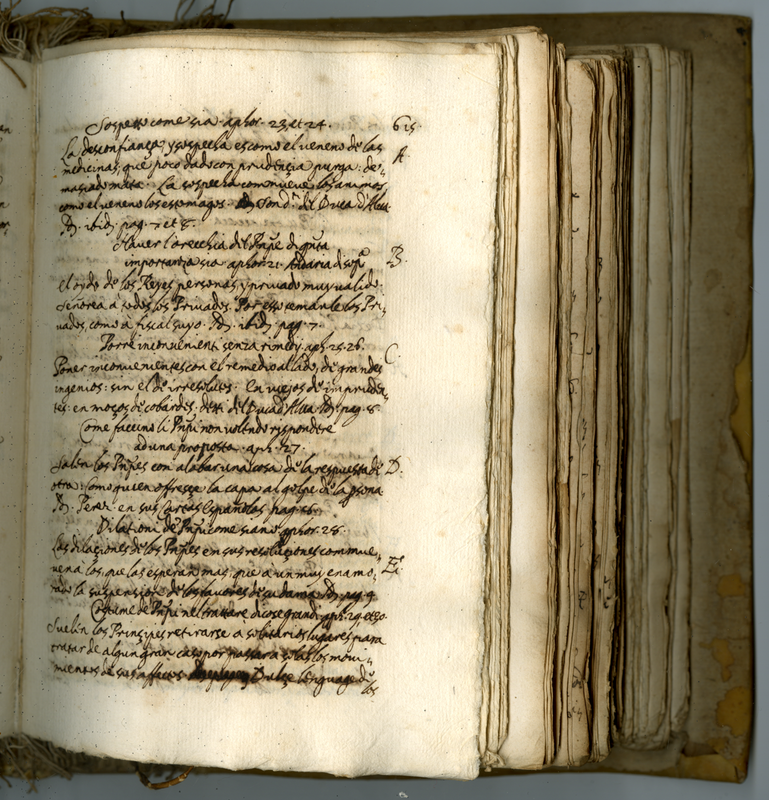 Sospetto come sia. aphor. 23. et 24. 615.
La desconfiança y sospecha es como el veneno de las A.
medicinas, que poco dado con prudençia purga: de„
masiado mata. La sospecha commueve los animos,
como el veneno los estomagos. Sond.^ti del Duca d'Alva.
ibid. pag. 7 et 8.
Haver l'orecchia del Pnpe di q̃nta
importanza sia aphor. 21. B.
el oido de los Reyes persona, y privado muy valido.
Señorea a todos los Privados. Por esso temanle los Pri„
vados, como a fiscal suyo. ibid. pag. 7.
Porre inconvenienti senza rimedij. aph. 25. 26. C.
Poner inconvenientes con el remedio al lado, de grandes
ingenios: sin el de irresolutos. En viejos de impruden„
tes: en moços de cobardes. detti del Duca d'Alva. pag. 8.
Come faccino li Pnpi non volendo rispondere
ad una proposta. aph. 27.
Salen los Pnpes con alabar una cosa de la respuesta de D.
otra: Como quien offresce la capa al golpe de la psona
Perez. en sus Cartas Españolas. pag. 56.
Dilationi de Pnpi come siano. aphor. 28.
Las dilaçiones de los Pnpes en sus resoluçiones commue„
vena los, que las esperan mas, que a un muy enamo„ E.
rado la suspension de los favores de su dama. pag. 9
Costume de Pnpi nel trattare di cose grandi. aph. 29. et 30.
Suelen los Prinçipes retirarse a solitarios lugares para
tratar de algun gran caso por passar a solas los movi„
mientos de sus affectos. Dulçe lenguage de
los